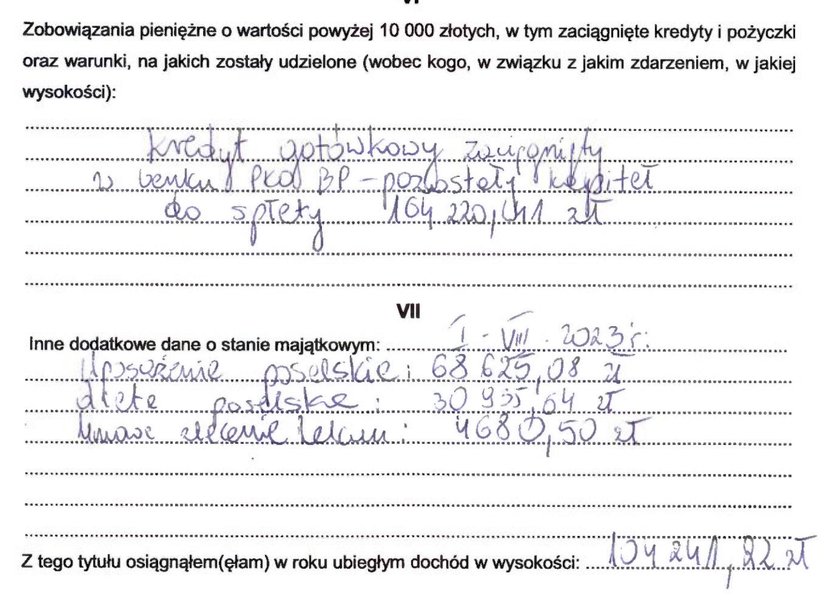 VI
Zobowiązania pieniężne o wartości powyżej 10 000 złotych, w tym zaciągnięte kredyty i pożyczki
oraz warunki, na jakich zostały udzielone (wobec kogo, w związku z jakim zdarzeniem, w jakiej
wysokości):
kredyt gotówkowy zaciągnięty
w banku PKO BP – pozostały kapitał
do spłaty 164 220,41 zł
VII
Inne dodatkowe dane o stanie majątkowym: I - VIII. 2023 r.
Uposażenie poselskie: 68 625,08 zł
dieta poselska: 30 935,64 zł
Umowa zlecenie : 4680,50 zł
Z tego tytułu osiągnąłem(ęłam) w roku ubiegłym dochód w wysokości: 104 241,22 zł